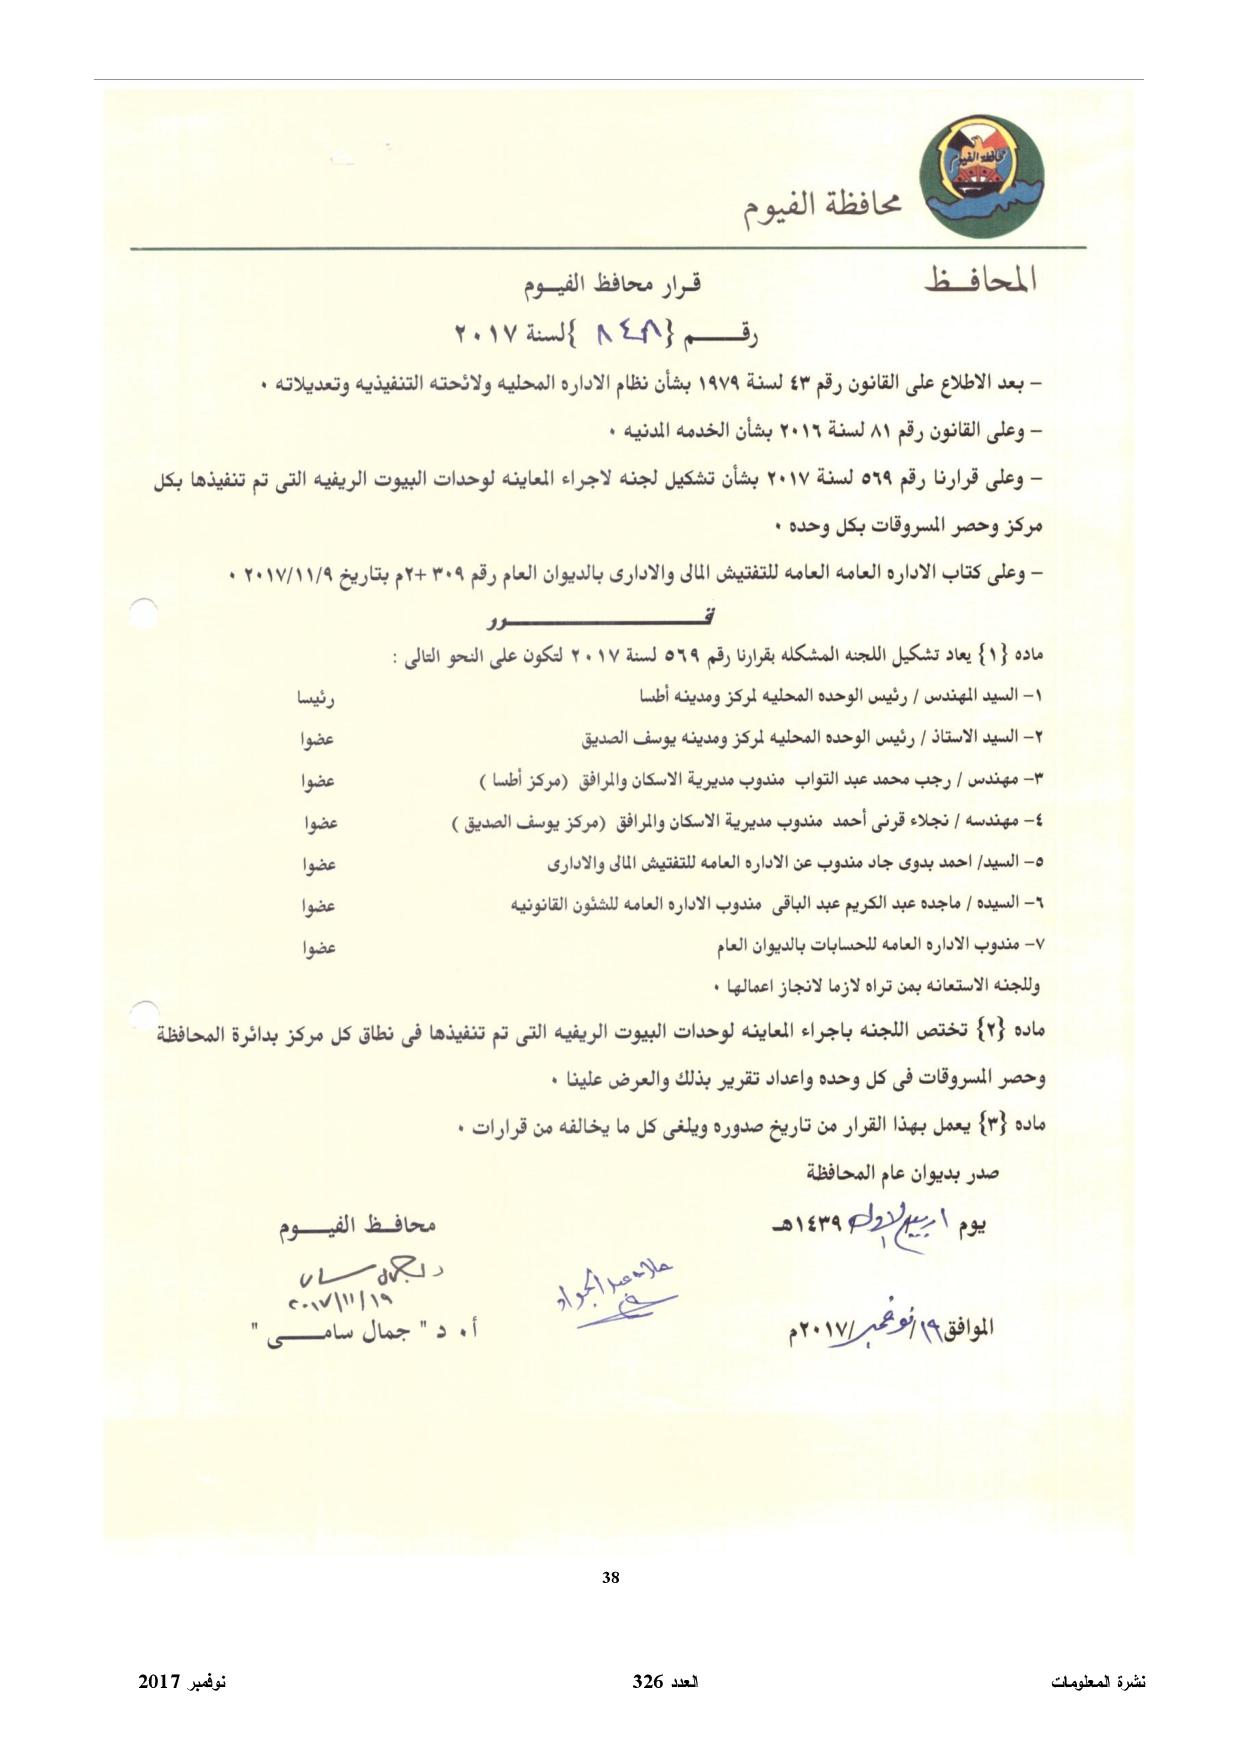 محافظة الفيوم
محافظة الفيوم
المحافــظ
قـرار محافظ الفيـــوم
رقـــــم {٨٤٨} لسنة ٢٠١٧
– بعد الاطلاع على القانون رقم ٤٣ لسنة ١٩٧٩ بشأن نظام الاداره المحليه ولائحته التنفيذيه وتعديلاته ٠
– وعلى القانون رقم ٨١ لسنة ٢٠١٦ بشأن الخدمه المدنيه ٠
– وعلى قرارنا رقم ٥٦٩ لسنة ٢٠١٧ بشأن تشكيل لجنه لاجراء المعاينه لوحدات البيوت الريفيه التى تم تنفيذها بكل
مركز وحصر المسروقات بكل وحده ٠
– وعلى كتاب الاداره العامه العامه للتفتيش المالى والادارى بالديوان العام رقم ٣٠٩ +٢م بتاريخ ٢٠١٧/١١/٩ ٠
قــــــــــــــــرر
ماده {١} يعاد تشكيل اللجنه المشكله بقرارنا رقم ٥٦٩ لسنة ٢٠١٧ لتكون على النحو التالى :
١– السيد المهندس / رئيس الوحده المحليه لمركز ومدينه أطسا رئيسا
٢– السيد الاستاذ / رئيس الوحده المحليه لمركز ومدينه يوسف الصديق عضوا
٣– مهندس / رجب محمد عبد التواب مندوب مديرية الاسكان والمرافق (مركز أطسا ) عضوا
٤– مهندسه / نجلاء قرنى أحمد مندوب مديرية الاسكان والمرافق (مركز يوسف الصديق ) عضوا
٥– السيد/ احمد بدوى جاد مندوب عن الاداره العامه للتفتيش المالى والادارى عضوا
٦– السيده / ماجده عبد الكريم عبد الباقى مندوب الاداره العامه للشئون القانونيه عضوا
٧– مندوب الاداره العامه للحسابات بالديوان العام عضوا
وللجنه الاستعانه بمن تراه لازما لانجاز اعمالها ٠
ماده {٢} تختص اللجنه باجراء المعاينه لوحدات البيوت الريفيه التى تم تنفيذها فى نطاق كل مركز بدائرة المحافظة
وحصر المسروقات فى كل وحده واعداد تقرير بذلك والعرض علينا ٠
ماده {٣} يعمل بهذا القرار من تاريخ صدوره ويلغى كل ما يخالفه من قرارات ٠
صدر بديوان عام المحافظة
يوم ١ ربيع الاول ١٤٣٩هـ
محافــظ الفيــــوم
٢٠١٧/١١/١٩
الموافق ١٩/نوفمبر/٢٠١٧م
أ٠ د " جمال سامــــى "
38
نشرة المعلومات العدد 326 نوفمبر 2017